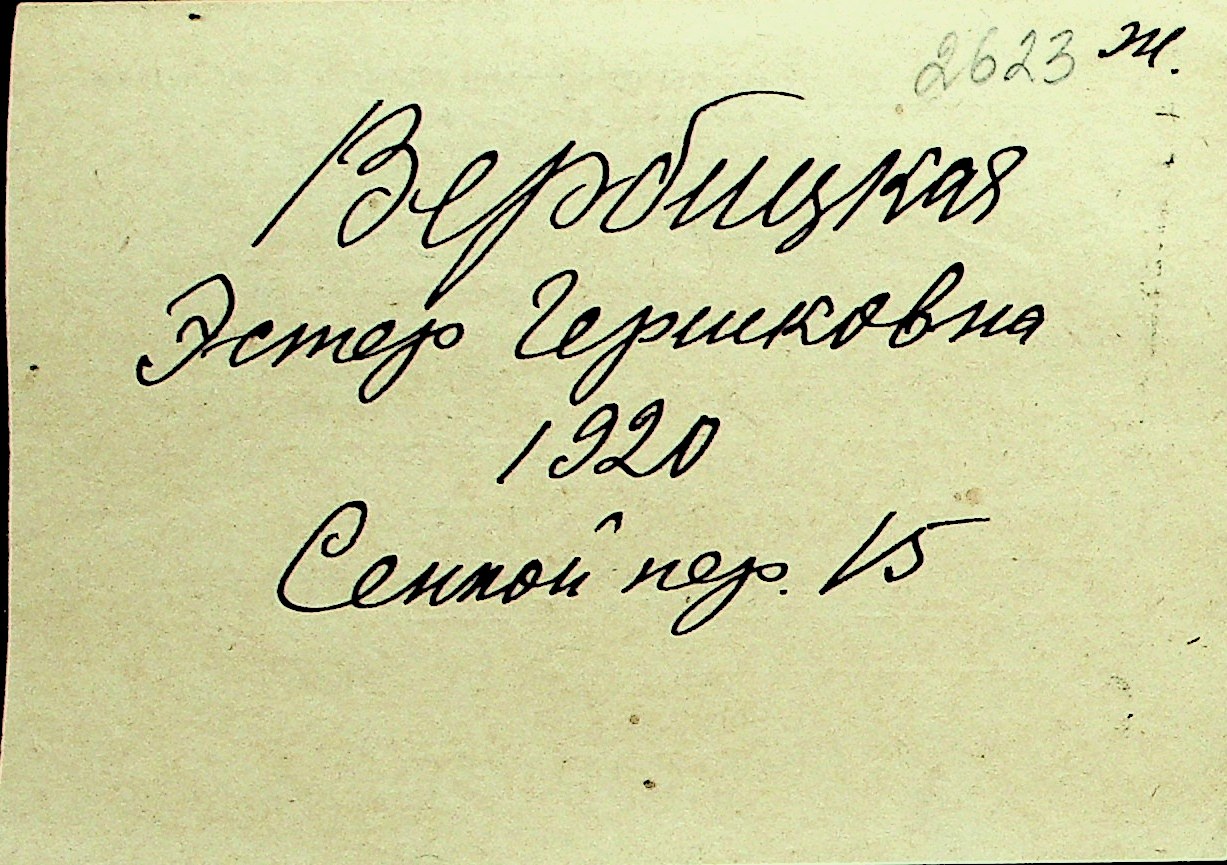 2623 ж.
Вербицкая
Эстер Гершковна
1920
Сенной пер. 15